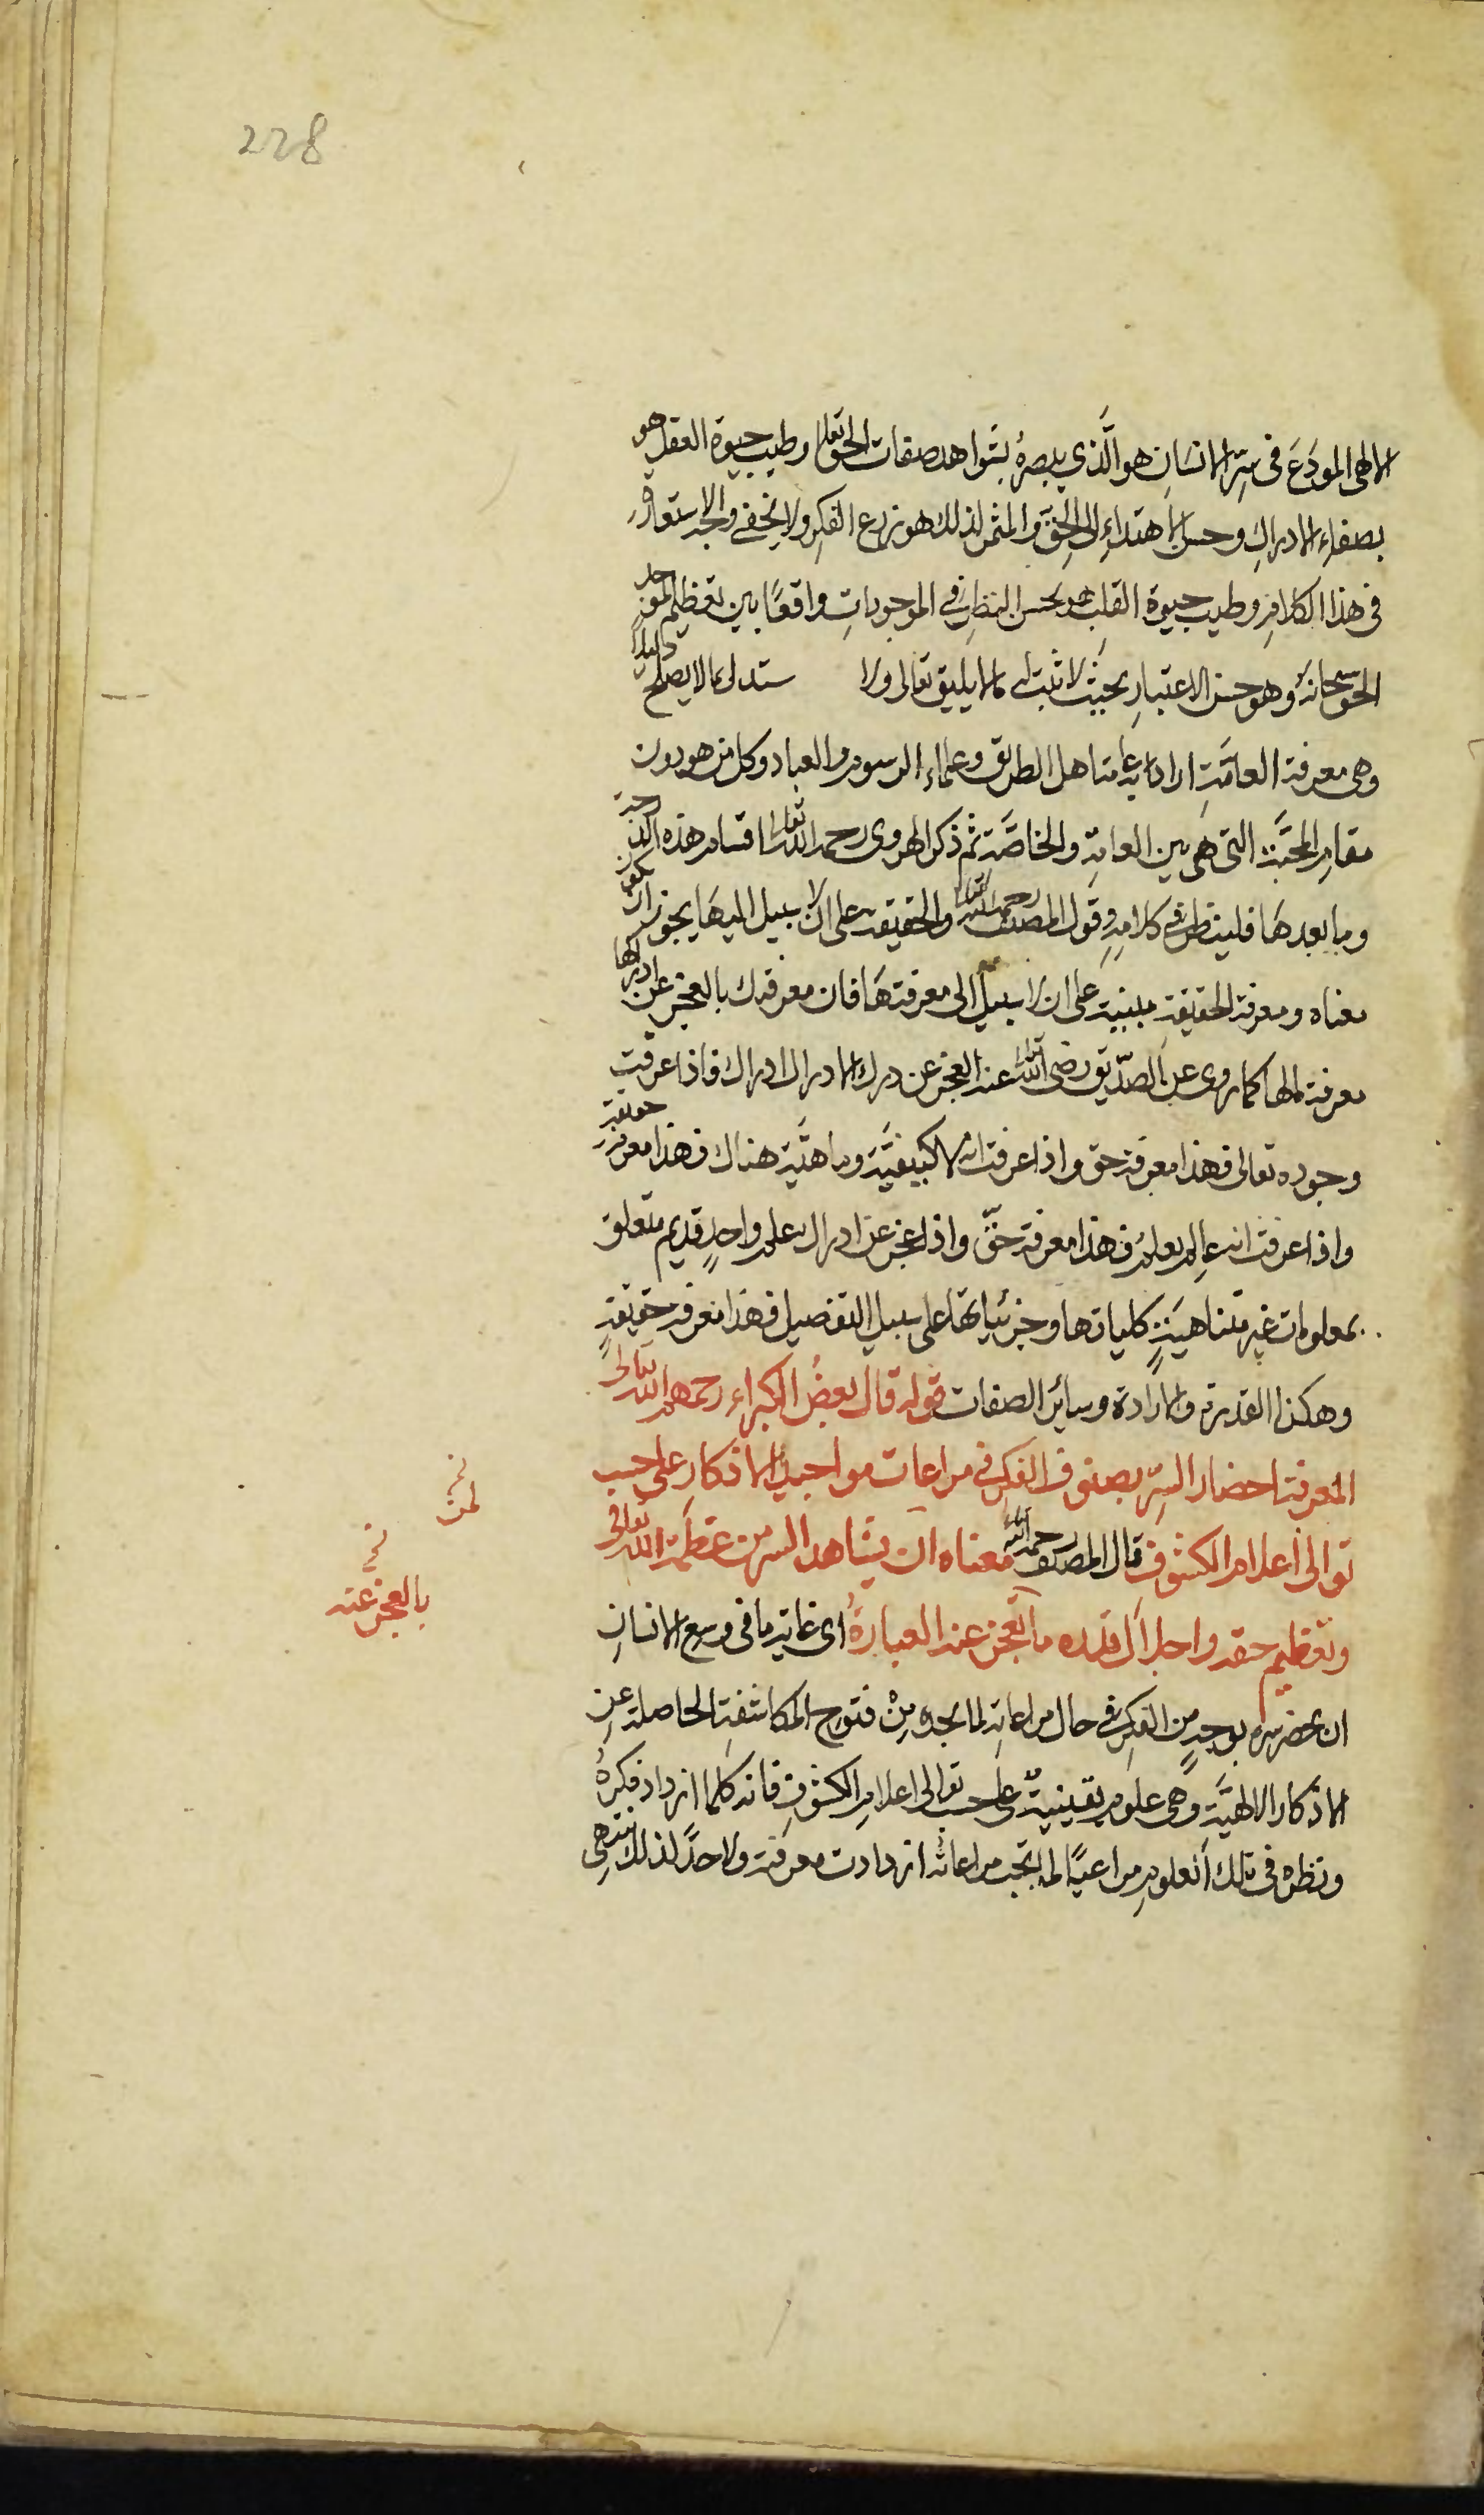 228
الالهى المودَع فى سِرّ الانسان هو الَّذي يبصره بشواهد صفات الحق تعالى وطيب حيوة العقل هو
بصفاء الادراك وحسن الاهتداء الى الحق والمثمر لذلك هو زرع الفكر ولا يخفى والاستعارة
فى هذا الكلام وطيب حيوة القلب هو بحسن النظر فى الموجودات واقعًا بين تعظيم
الحق سبحانه وهو حسن الاعتبار بحيث لا تثبت له ما لا يليق تعالى ولا ستدل بما لا يصلح دليلا
وهى معرفة العامّة اراد به عامة اهل الطريق وعلماء الرسوم والعباد وكل من هو دون
مقام المحبّة التى هى بين العامة والخاصّة ثم ذكر الهروى رحمه الله تعالى اقسام هذه الدرجة
وما بعدها فلينظر فى كلامه وقول المصنف رحمه الله تعالى والحقيقة على ان لا سبيل اليها يجوز ان يكون
معناه ومعرفة الحقيقة مبنية على ان لا سبيل الى معرفتها فان معرفتك بالعجز عن ادراكها
معرفة لها كما روى عن الصدّيق رضى الله تعالى عنه العجز عن درك الادراك ادراك فاذا عرفت
وجوده تعالى فهذا معرفة حق واذا عرفت انه لا كيفيّة وماهيّة هناك فهذا معرفة حقيقة
واذا عرفت انه عالم بعلم فهذا معرفة حقّ واذا عجز عن ادراك علم واحد قديم متعلق
بمعلومات غير متناهية كلياتها وجزئياتها على سبيل التفصيل فهذا معرفة حقيقة
وهكذا القدرة والارادة وسائر الصفات قوله قال بعض الكبراء رحمهم الله تعالى
المعرفة احضار السرّ بصنوف الفكر فى مراعات مواجيد الاذكار على حسب
توالى اعلام الكشوف قال المصنف رحمه الله معناه ان يشاهد السر من عظمة الله تعالى
وتعظيم حقه واجلال قدره ما تعجز عنه العبارة اى غاية ما فى وسع الانسان
ان يحضر سره بوجهٍ من الفكر فى حال مراعاته لما يجده من فتوح المكاشفة الحاصلة عن
الاذكار الالهيّة وهى علوم يقينية على حسب توالى اعلام الكشوف فانه كلما ازداد فكره
ونظره فى تلك العلوم مراعيًا لما تجب مراعاته ازدادت معرفته ولا حدّ لذلك ينتهى
لمن
بالعجز عنه